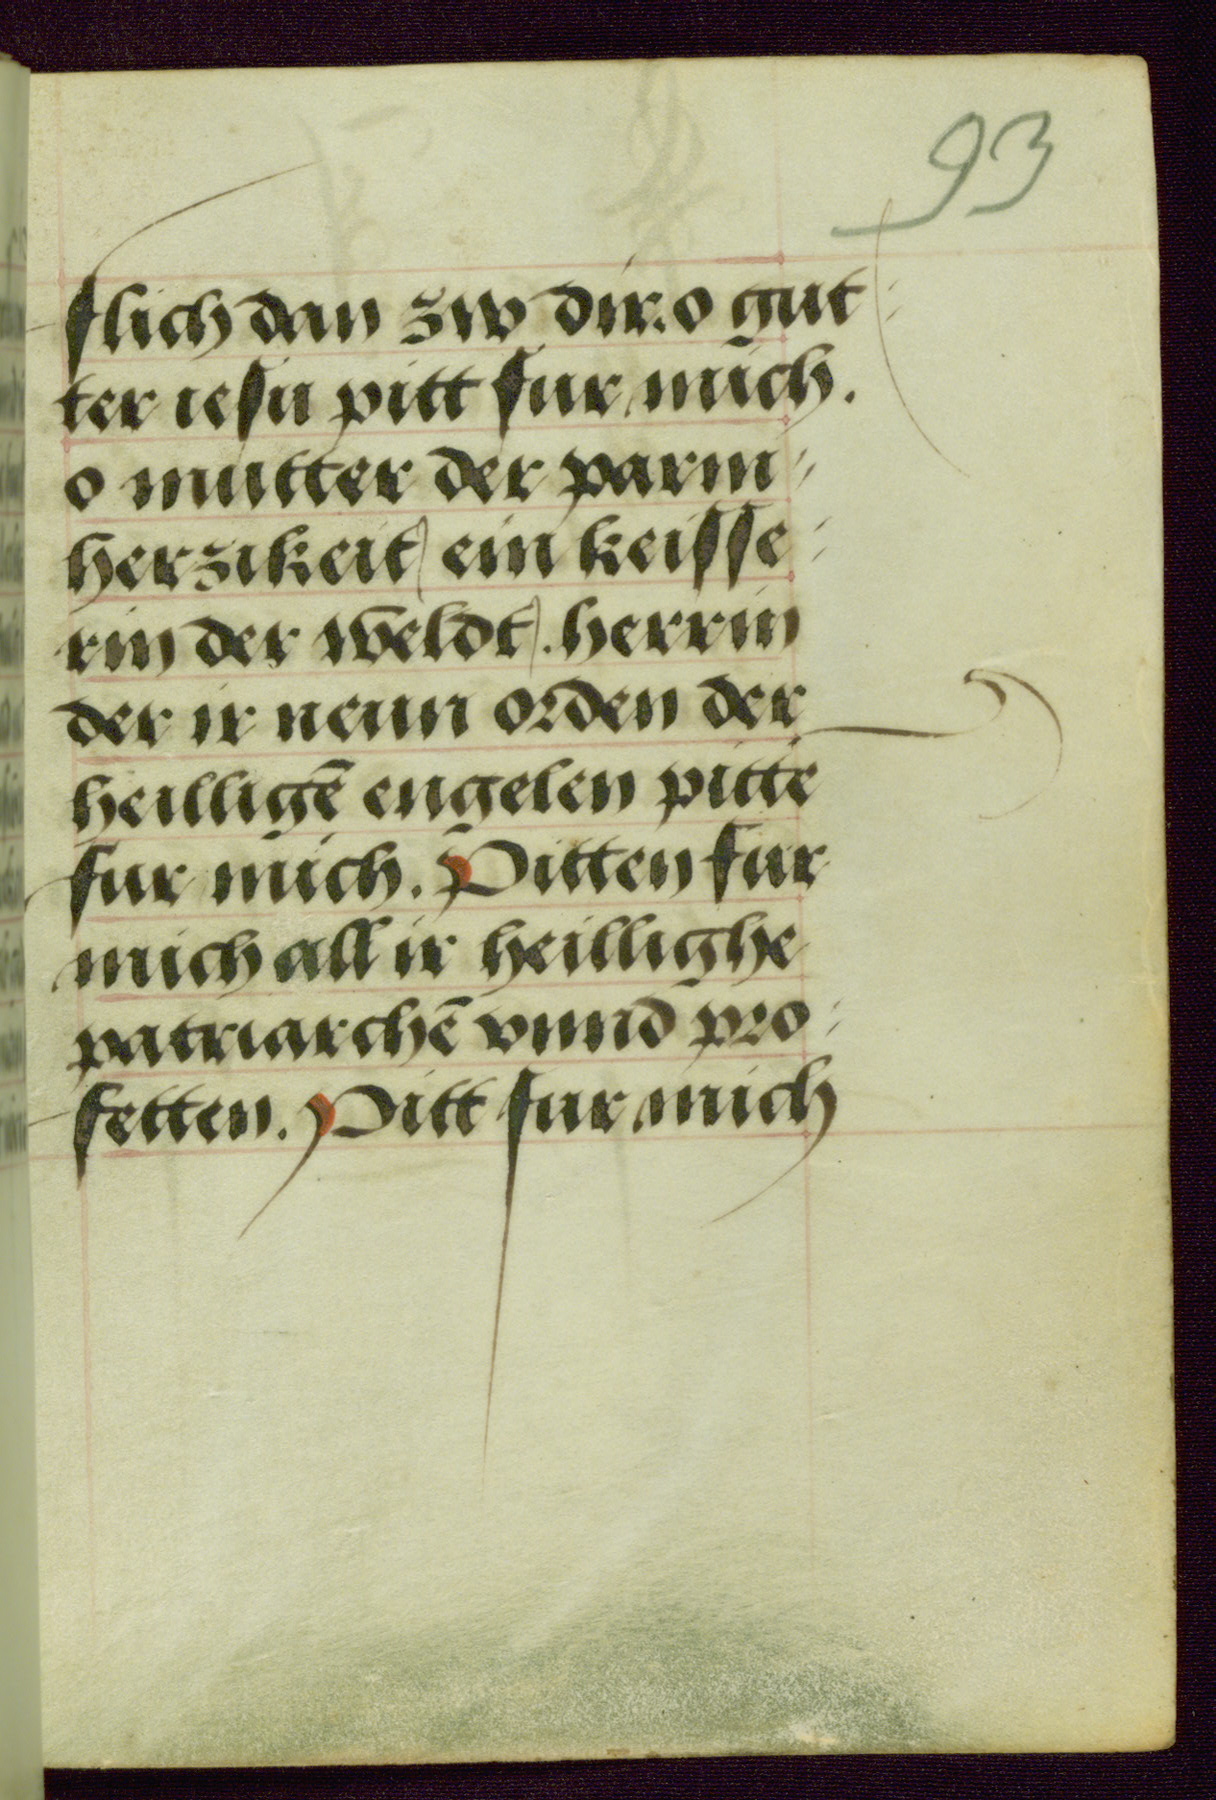 93
flich dan zw dir. o gut⸗
ter iesu pitt fur mich.
o mutter der parm⸗
herzikeit ein keisse⸗
rin der weldt. herrin
der ir neun orden der
heilligē engelen pitte
fur mich. Pitten fur
mich all ir heillighe
patriarchē vnnd pro⸗
fetten. Pitt fur mich